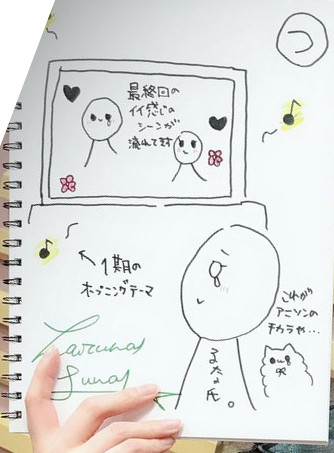 つ
最終回の
イイ感じの
シーンが
流れてます
1期の
オープニングテーマ
これが
アニソンの
チカラや…
るな氏。